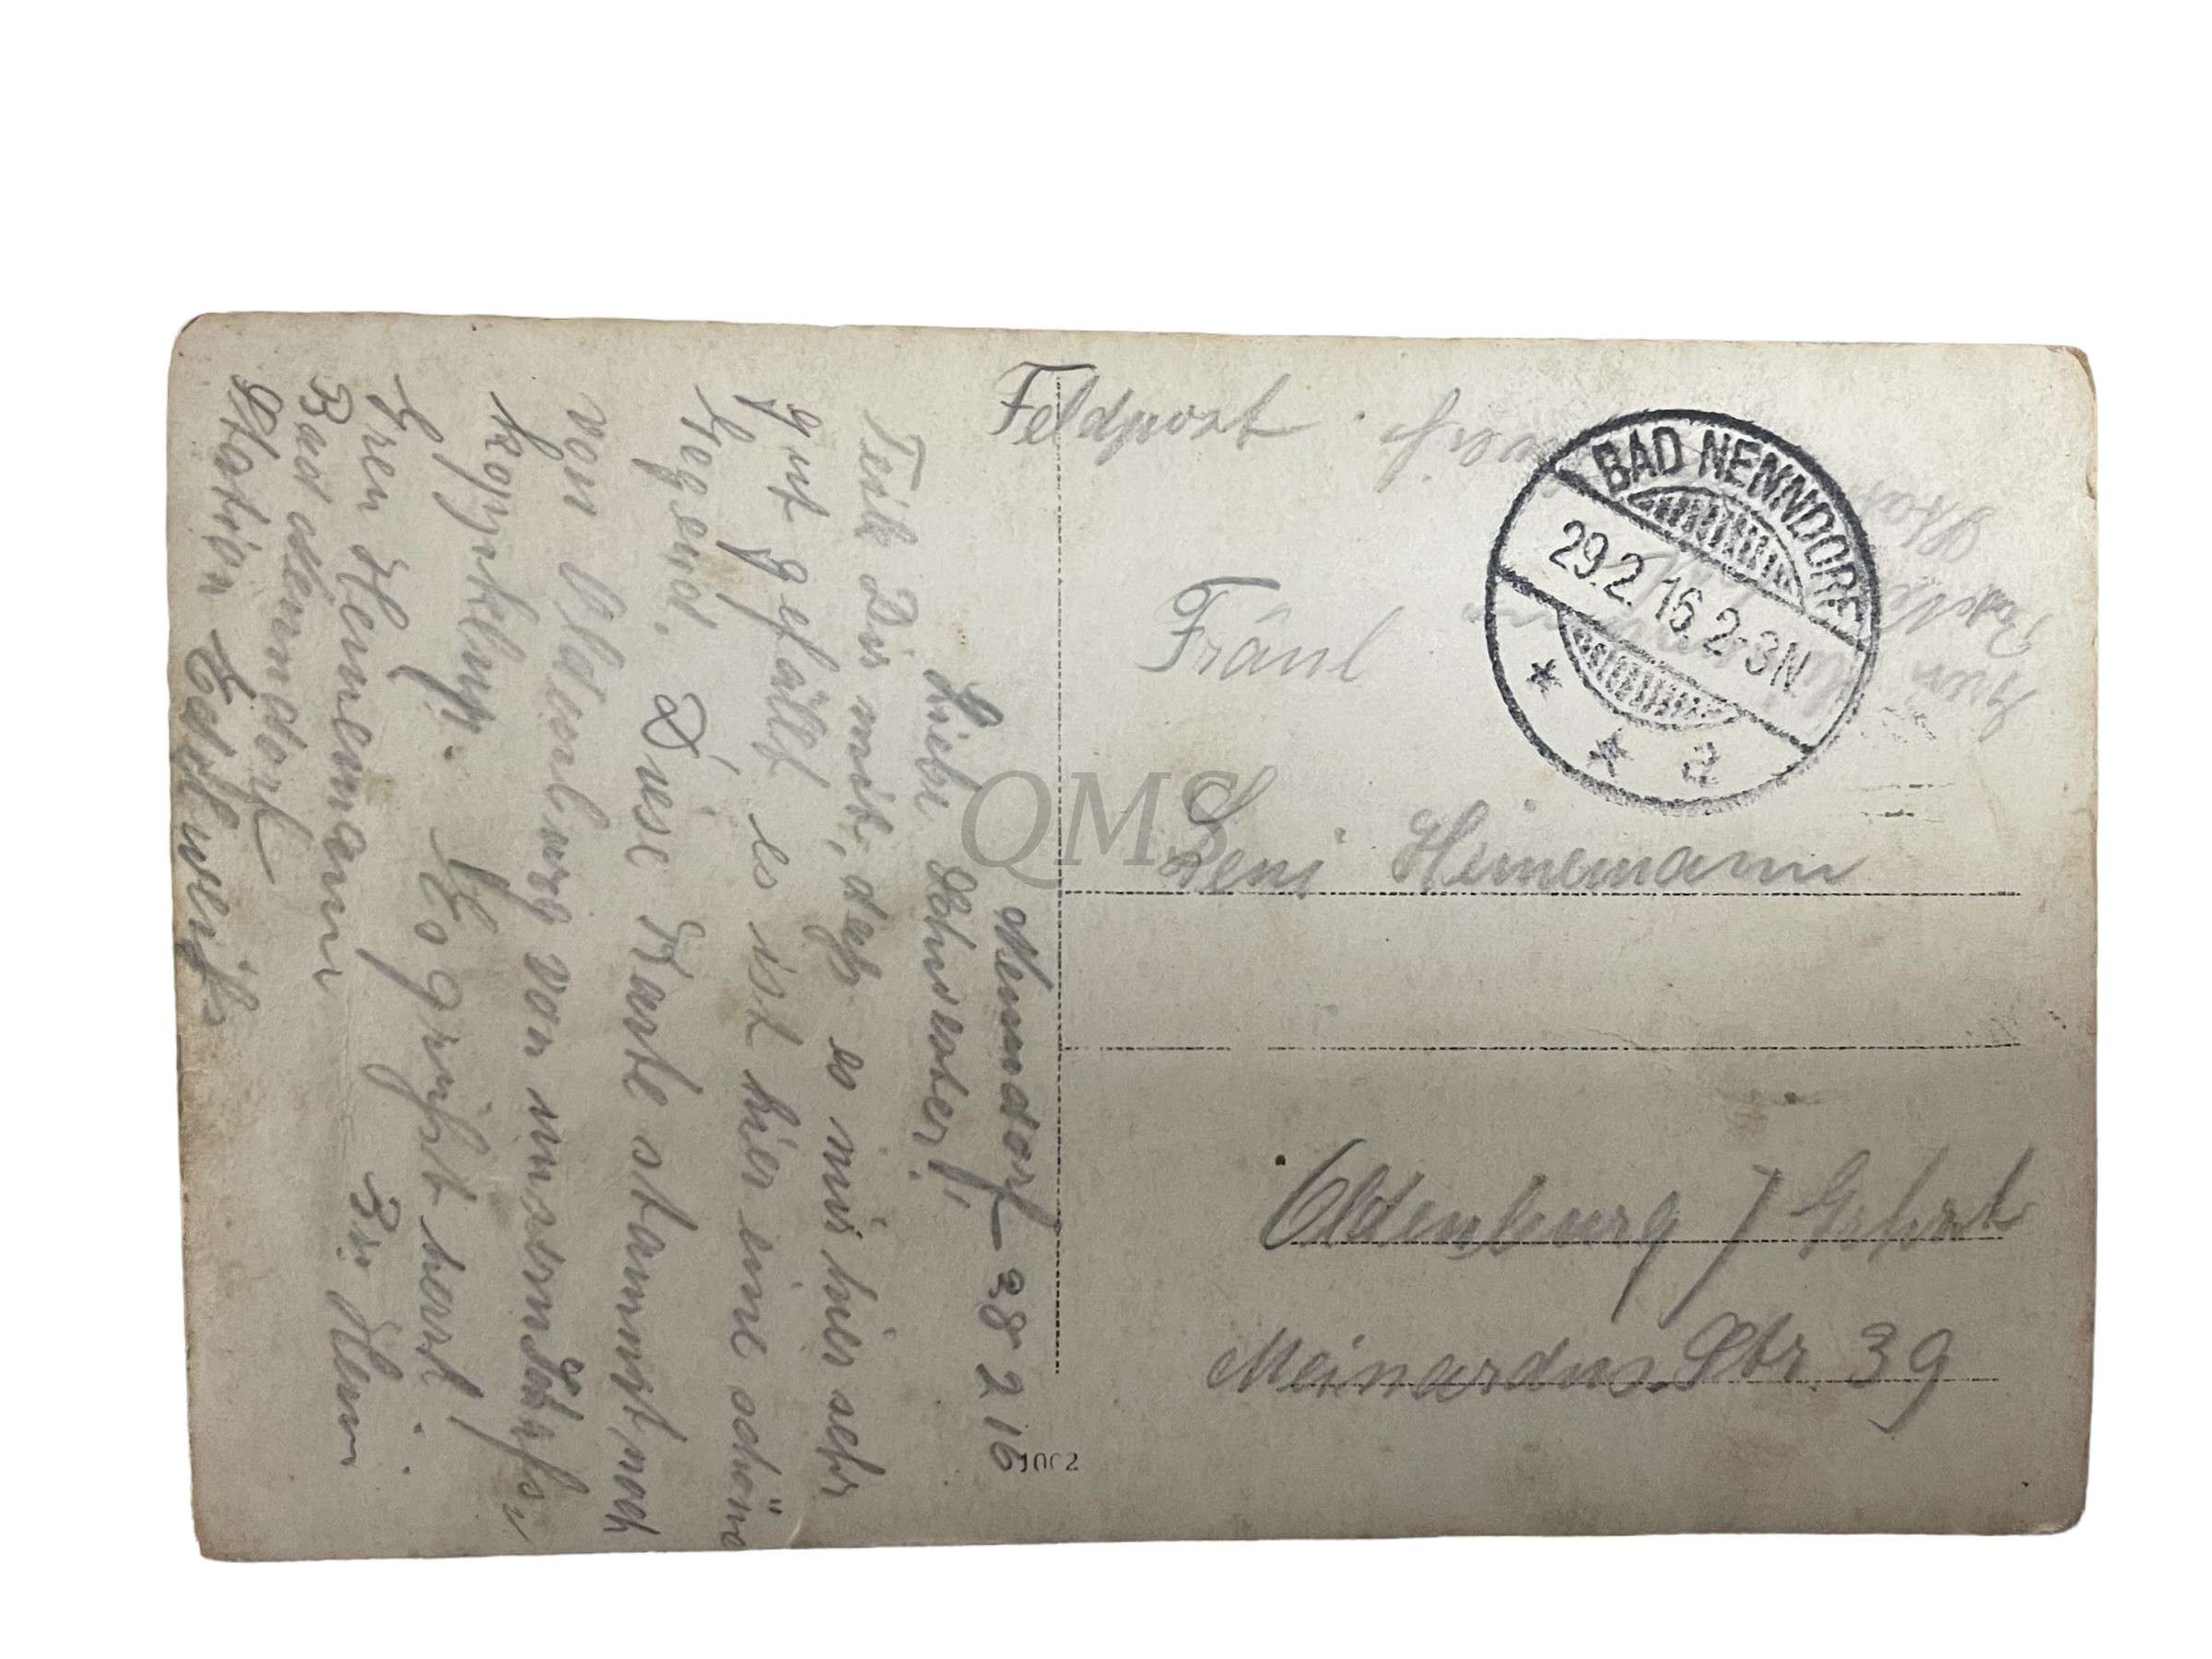 Feldpost
BAD NENNDORF
29.2.16.2-3N
* * a
Fräul
Leni Heinemann
Oldenburg / Grhrt
Meinardus Str. 39
Nenndorf 28 2 16
Liebe Schwester!
Teile Dir mit, daß es mir hier sehr
gut gefällt es ist hier eine schöne
Gegend. Diese Karte stammt noch
von Oldenburg von unserm
Es grüßt
Gren Heinemann Br. Heini
Bad Nenndorf
Station Edelweiß
1002
QMS